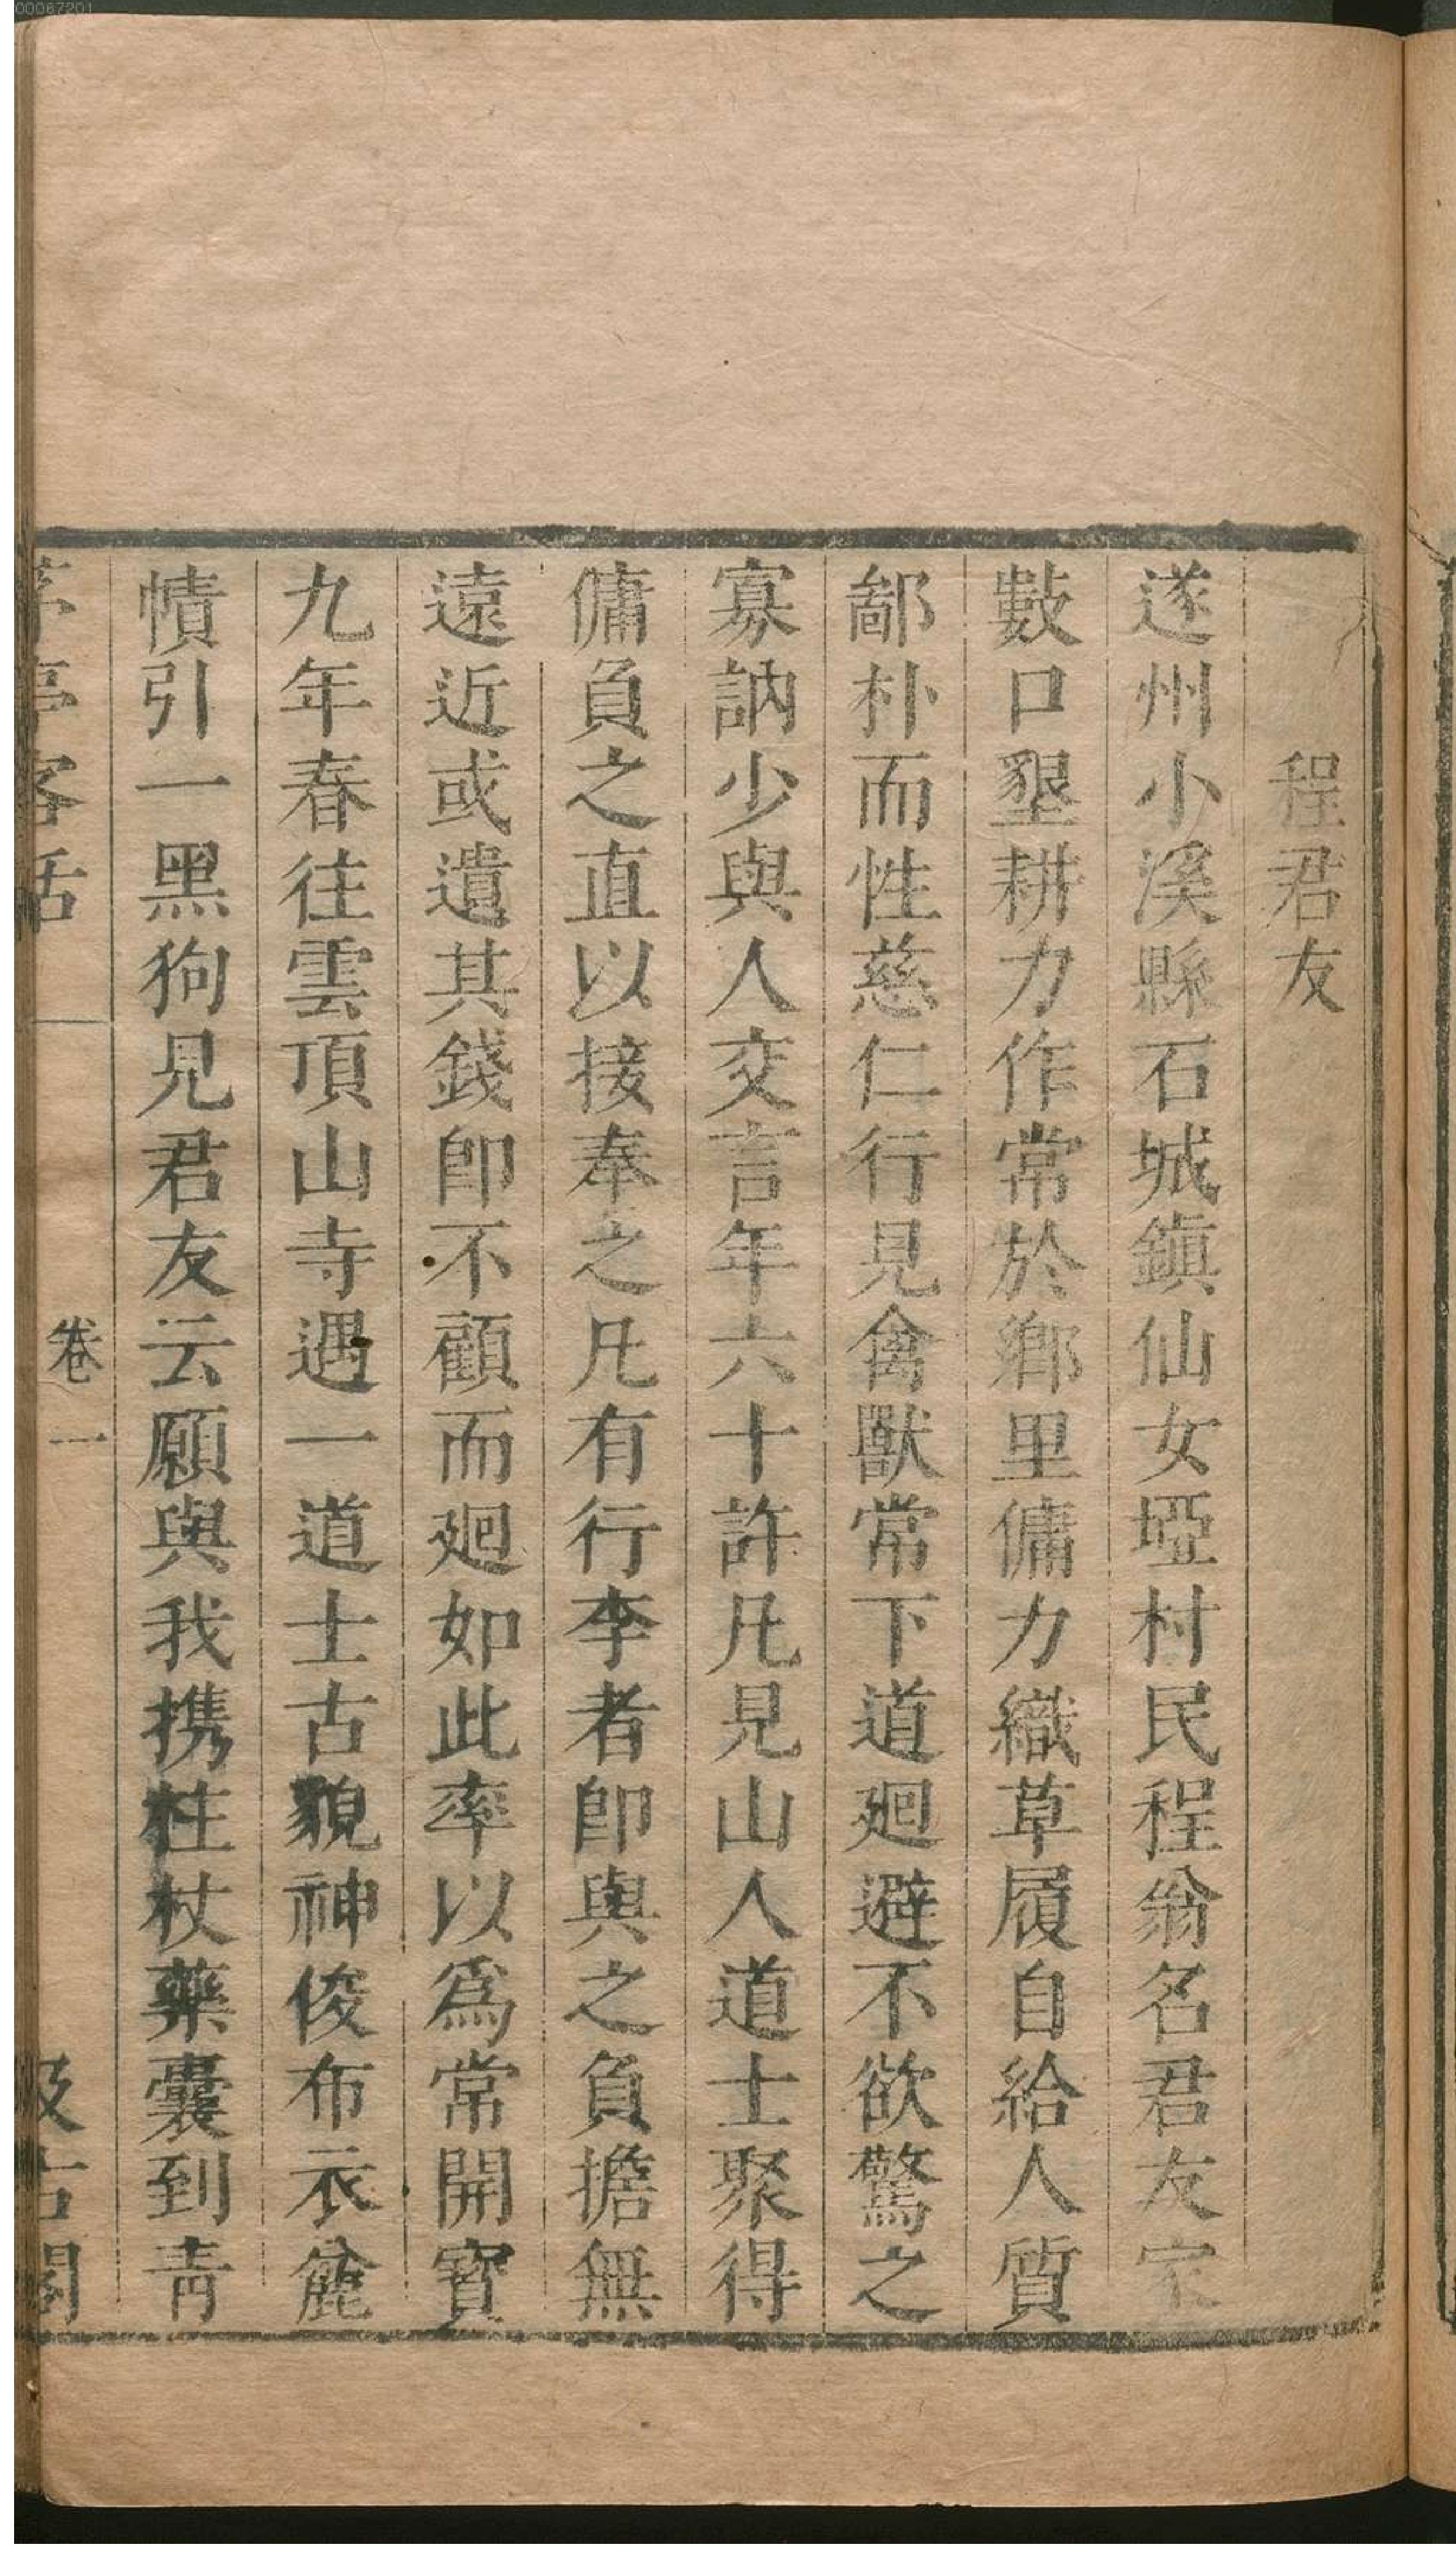 00067201
程君友
遂州小溪縣石城鎮仙女埡村民程翁名君友家
數口墾耕力作常於鄉里傭力織草履自給人質
鄙朴而性慈仁行見禽獸常下道廻避不欲驚之
寡訥少與人交言年六十許凡見山人道士聚得
傭負之直以接奉之凡有行李者卽與之負擔無
遠近或遺其錢卽不顧而廻如此率以爲常開寶
九年春往雲頂山寺遇一道士古貌神俊布衣麄
幘引一黑狗見君友云願與我携拄杖藥囊到靑
茅亭客話 卷一 汲古閣